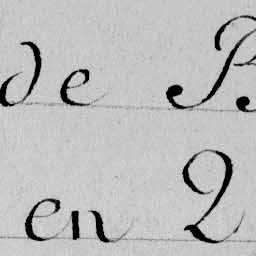 de B
en 2